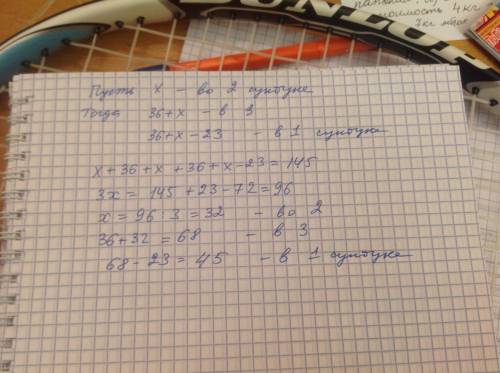 DUNLOP
4 кг
7 кг яблок
Пусть x - во 2 сундуке
Тогда 36+x - в 3
36+x-23 - в 1 сундуке
x+36+x+36+x-23=145
3x = 145+23-72=96
x=96:3=32 - во 2
36+32=68 - в 3
68-23=45 - в 1 сундуке